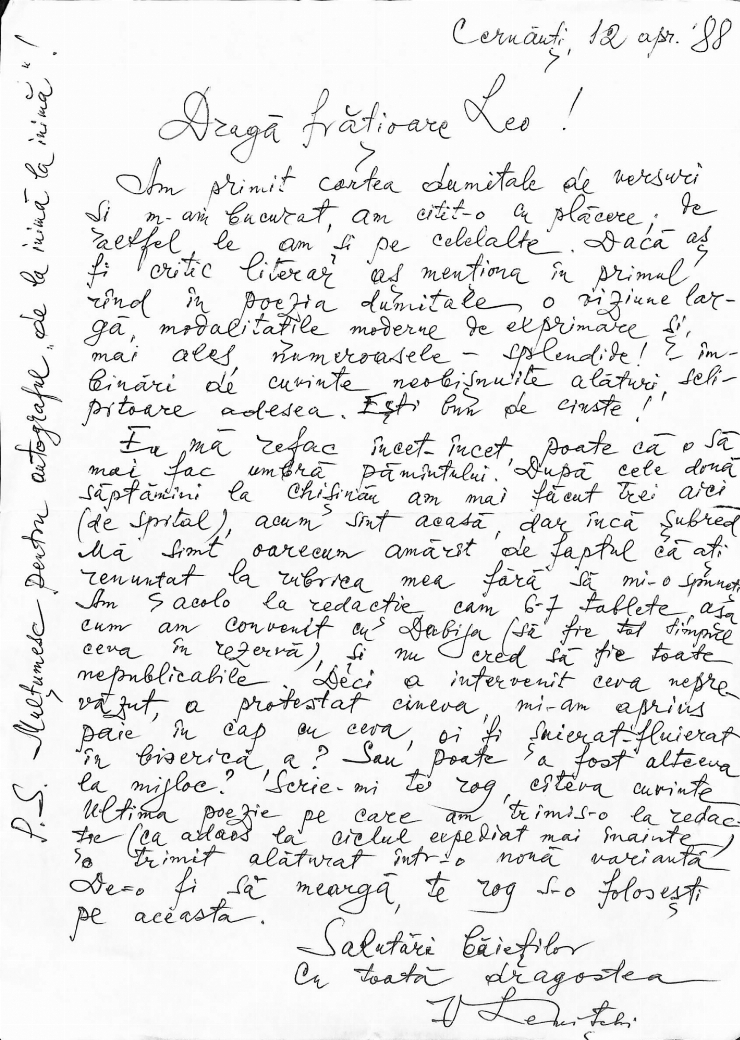 Cernăuți, 12 apr. '88
Dragă frățioare Leo!
Am primit cartea dumitale de versuri
și m-am bucurat, am citit-o cu plăcere, de
altfel, le am și pe celelalte. Dacă aș
fi critic literar aș menționa în primul
rînd în poezia dumitale o viziune lar-
gă, modalitățile moderne de exprimare și,
mai ales numeroasele – splendide! – îm-
binări de cuvinte neobișnuite alături, scli-
pitoare adesea. Ești bun de cinste!
Eu mă refac încet-încet, poate că o să
mai fac umbră pămîntului. După cele două
săptămîni la Chișinău am mai făcut trei aici
(de spital), acum sînt acasă, dar încă șubred
Mă simt oarecum amărît de faptul că ați
renunțat la rubrica mea fără să mi-o spuneți
Am acolo la redacție cam 6-7 tablete, așa
cum am convenit cu Dabija (să fie tot timpul
ceva în rezervă), și nu cred să fie toate
nepublicabile. Deci a intervenit ceva nepre-
văzut, a protestat cineva, mi-am aprins
paie în cap cu ceva, oi fi șuierat-fluierat
în biserică, a? Sau poate a fost altceva
la mijloc? Scrie-mi te rog, cîteva cuvinte
Ultima poezie pe care am trimis-o la redac-
ție (ca adaos la ciclul expediat mai înainte)
o trimit alăturat într-o nouă variantă
De-o fi să meargă, te rog s-o folosești
pe aceasta.
Salutări băieților
Cu toată dragostea
V Levițchi
P.S. Mulțumesc pentru autograful „de la inimă la inimă"!